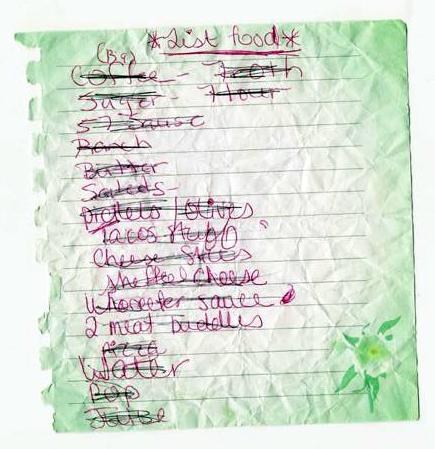 *List food*
(Big)
Coffee - Froth
Sugar - Flour
57 Sause
Ranch
Butter
Salads -
Pickels / olives
Tacos Stuff
Cheese Sticks
Shefted cheese
Whorceter sauce
2 meat
Pizza
Water
Pop